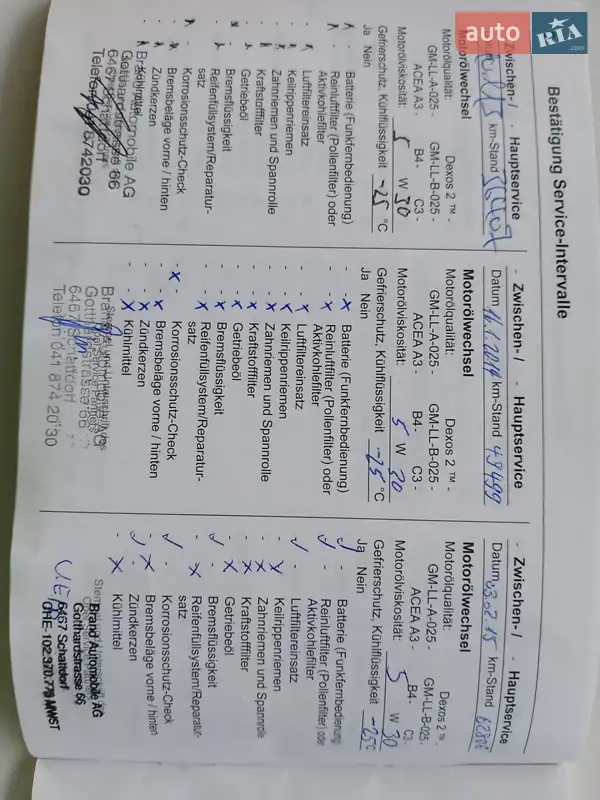 auto RIA .com
Bestätigung Service-Intervalle
Zwischen-/ - Hauptservice
km-Stand
Motorölwechsel
Motorölqualität: Dexos 2 ™ -
GM-LL-A-025 - GM-LL-B-025 -
ACEA A3 - B4 - C3 -
Motorölviskosität: 5 W 30
Gefrierschutz, Kühlflüssigkeit -25 °C
Ja Nein
Batterie (Funkfernbedienung)
Reinluftfilter (Pollenfilter) oder
Aktivkohlefilter
Luftfiltereinsatz
Keilrippenriemen
Zahnriemen und Spannrolle
Kraftstofffilter
Getriebeöl
Bremsflüssigkeit
Reifenfüllsystem/Reparatur-
satz
Korrosionsschutz-Check
Bremsbeläge vorne / hinten
Zündkerzen
Kühlmittel
Automobile AG
Gotthardstrasse 66
Schattdorf
8742030
- Zwischen-/ - Hauptservice
Datum 16.1.2014 km-Stand 49499
Motorölwechsel
Motorölqualität: Dexos 2 ™ -
GM-LL-A-025 - GM-LL-B-025 -
ACEA A3 - B4 - C3 -
Motorölviskosität: 5 W 30
Gefrierschutz, Kühlflüssigkeit -25 °C
Ja Nein
- x Batterie (Funkfernbedienung)
- x Reinluftfilter (Pollenfilter) oder
Aktivkohlefilter
- x Luftfiltereinsatz
- x Keilrippenriemen
- x Zahnriemen und Spannrolle
- x Kraftstofffilter
- x Getriebeöl
- x Bremsflüssigkeit
- x Reifenfüllsystem/Reparatur-
satz
x - Korrosionsschutz-Check
- x Bremsbeläge vorne / hinten
- x Zündkerzen
- x Kühlmittel
6467 Schattdorf
Telefon 041 874 20 30
- Zwischen-/ - Hauptservice
Datum 03.02.15 km-Stand
Motorölwechsel
Motorölqualität: Dexos 2 ™ -
GM-LL-A-025 - GM-LL-B-025 -
ACEA A3 - B4 - C3 -
Motorölviskosität: 5 W 30
Gefrierschutz, Kühlflüssigkeit -25°C
Ja Nein
Batterie (Funkfernbedienung)
Reinluftfilter (Pollenfilter) oder
Aktivkohlefilter
Luftfiltereinsatz
Keilrippenriemen
Zahnriemen und Spannrolle
Kraftstofffilter
Getriebeöl
Bremsflüssigkeit
Reifenfüllsystem/Reparatur-
satz
Korrosionsschutz-Check
Bremsbeläge vorne / hinten
Zündkerzen
Kühlmittel
Brand Automobile AG
Gotthardstrasse 66
6467 Schattdorf
CHE-102.370.778 MWST